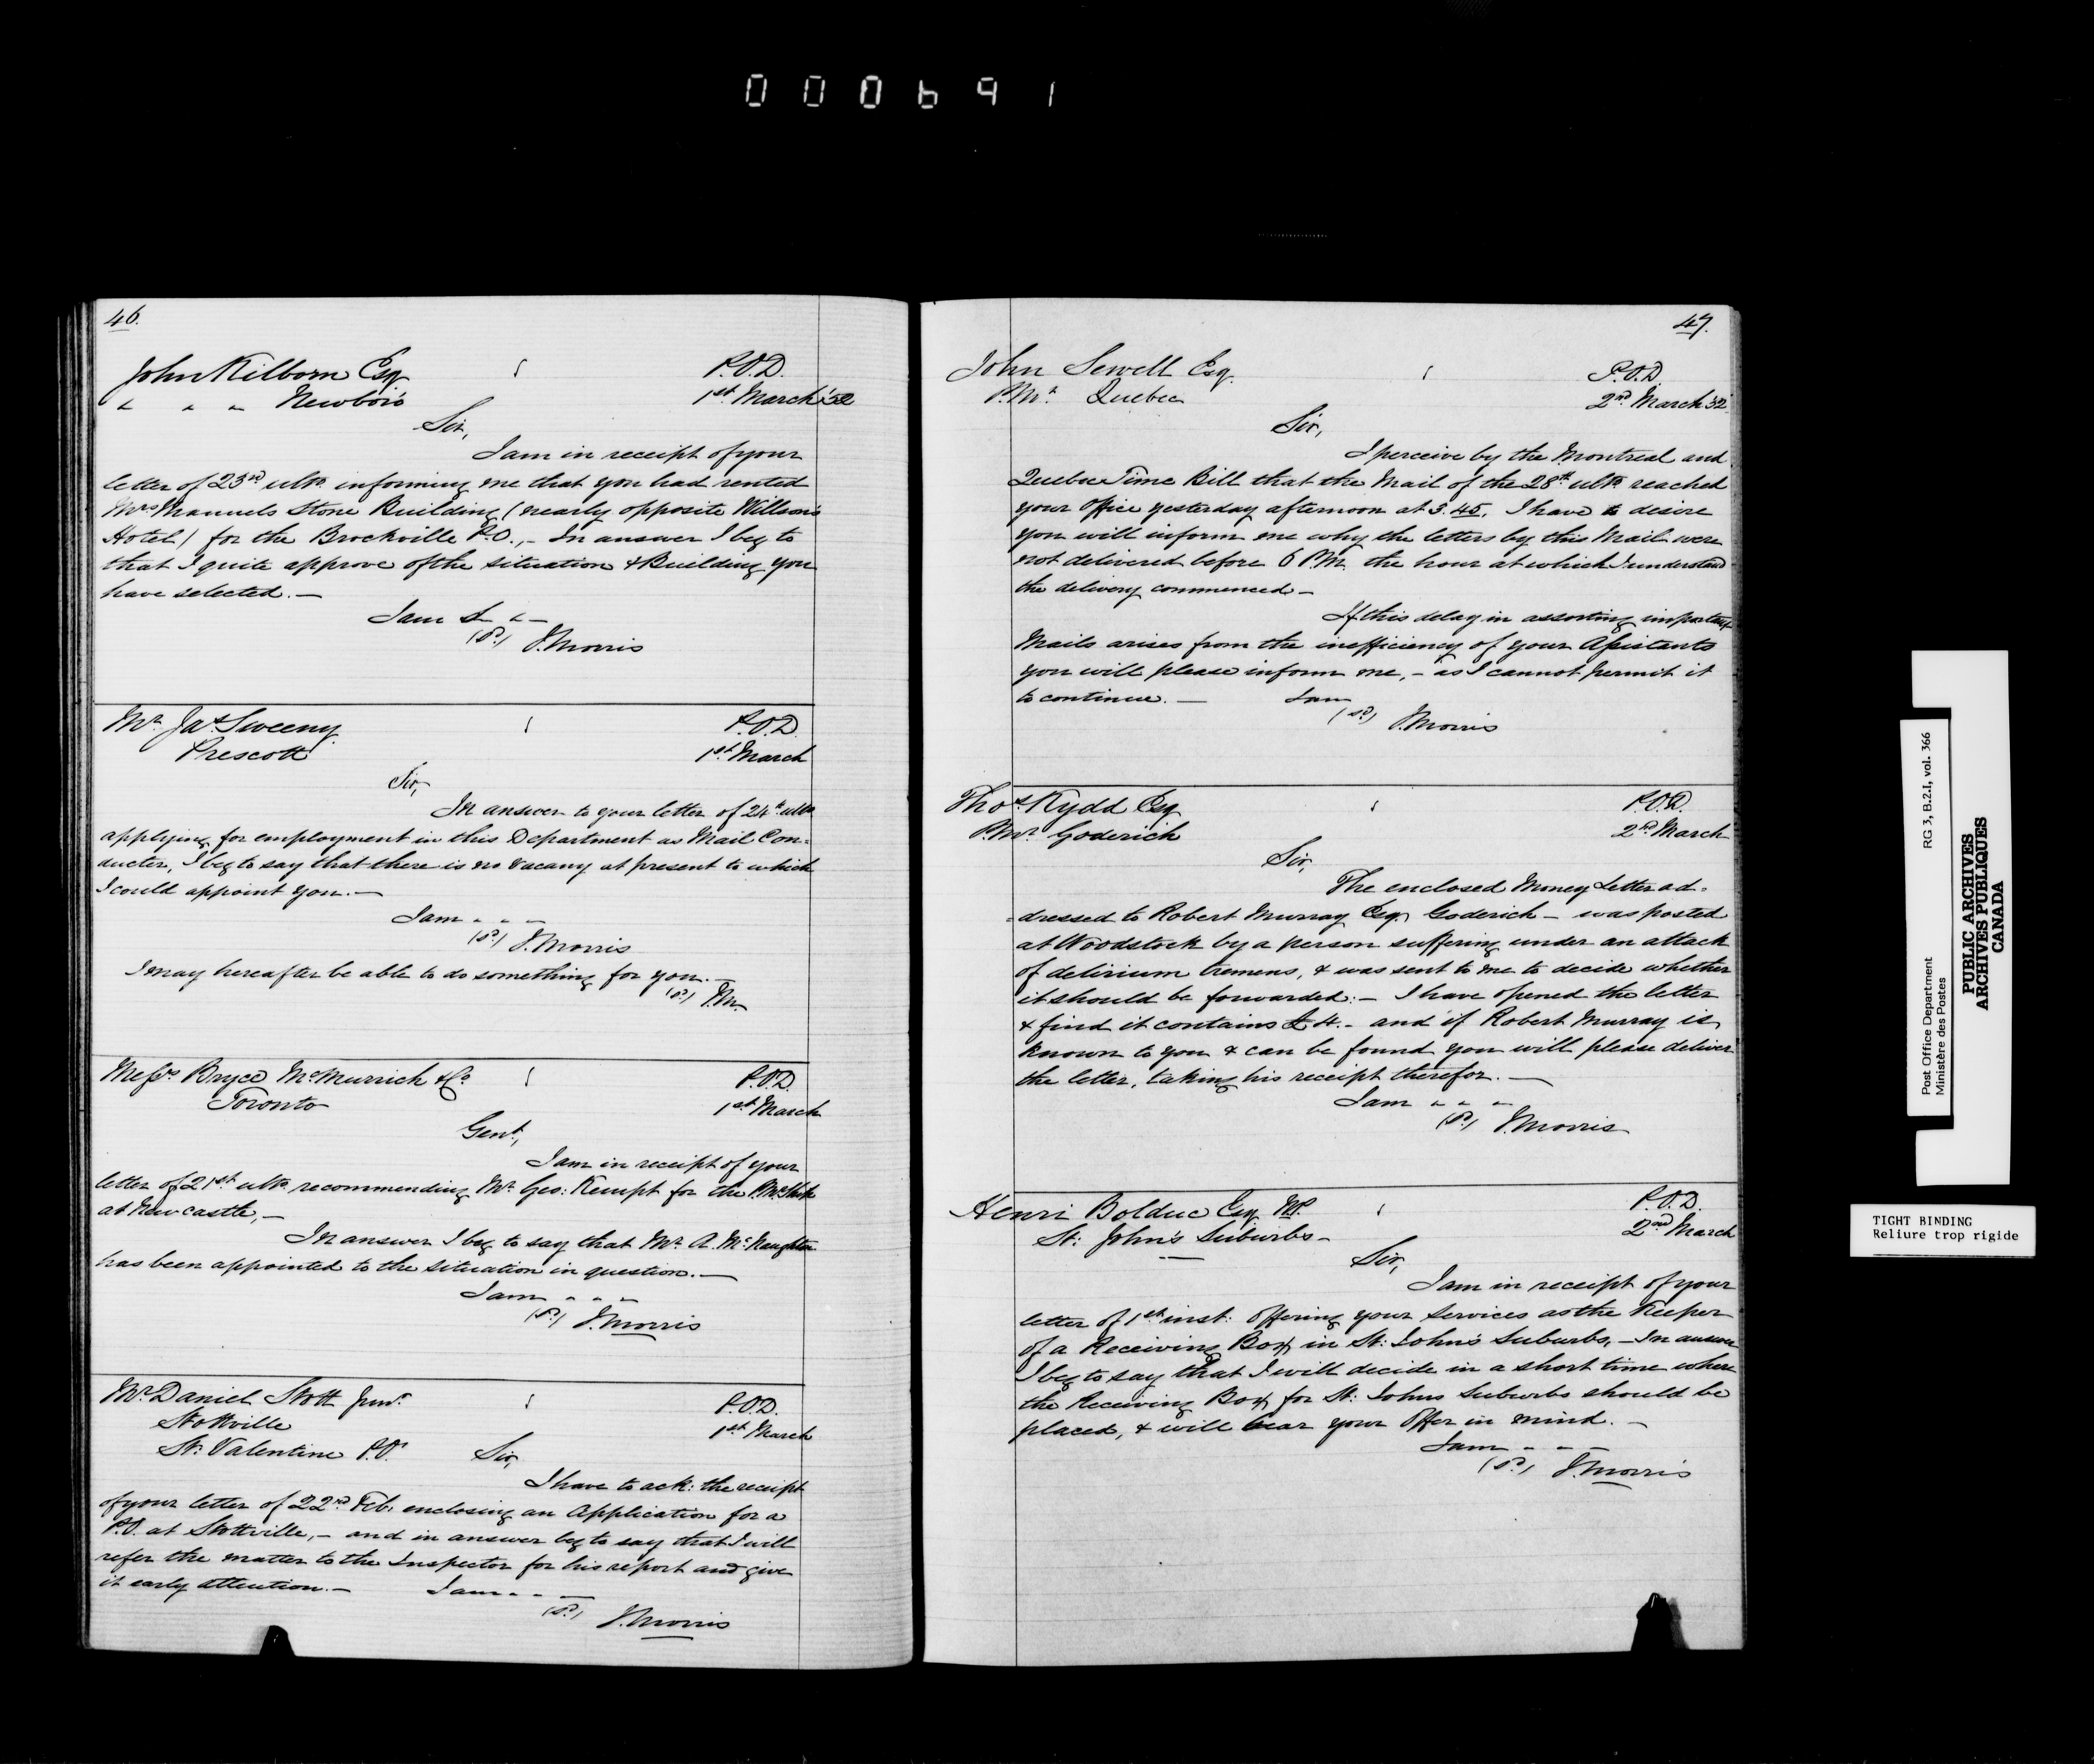 000691
46.
John Kilborn Esq P.O.D.
" " " Newboro 1st March '52
Sir,
I am in receipt of your
letter of 23rd ulto. informing me that you had rented
Mrs Manuels Stone Building (nearly opposite Willson's
Hotel) for the Brockville P.O., - In answer I beg to
that I quite approve of the situation & Building you
have selected. —
I am & " —
(sd.) J. Morris
Mr. Jas. Sweeny P.O.D.
Prescott 1st March
Sir,
In answer to your letter of 24th ulto
applying for employment in this Department as Mail Con=
ductor, I beg to say that there is no vacancy at present to which
I could appoint you. —
I am " " —
(sd.) J. Morris
I may hereafter be able to do something for you. —
(sd.) J.M.
Messrs. Bryce McMurrich & Co. P.O.D.
Toronto 1st March
Gent.,
I am in receipt of your
letter of 21st ulto. recommending Mr. Geo: Kempt for the P.M.Ship
at Newcastle, —
In answer I beg to say that Mr. A. McNaughton
has been appointed to the situation in question. —
I am " " "
(sd.) J. Morris
Mr. Daniel Stott Junr. P.O.D.
Stottville 1st March
St. Valentine P.O. Sir,
I have to ack: the receipt
of your letter of 22nd Feb. enclosing an Application for a
P.O. at Stottville, - and in answer beg to say that I will
refer the matter to the Inspector for his report and give
it early attention. — I am " " —
(sd.) J. Morris
47.
John Sewell Esq. P.O.D.
P.Mr. Quebec 2nd March '52
Sir,
I perceive by the Montreal and
Quebec Time Bill that the Mail of the 28th ulto. reached
your Office yesterday afternoon at 3.45. I have to desire
you will inform me why the letters by this Mail were
not delivered before 6 P.M. the hour at which I understand
the delivery commenced —
If this delay in assorting important
Mails arises from the inefficiency of your Assistants
you will please inform me, - as I cannot permit it
to continue. — I am
(sd.) J. Morris
Thos. Kydd Esq P.O.D.
P.Mr. Goderich 2nd March
Sir,
The enclosed Money Letter ad=
=dressed to Robert Murray Esq. Goderich — was posted
at Woodstock by a person suffering under an attack
of delirium tremens, & was sent to me to decide whether
it should be forwarded: — I have opened the letter
& find it contains £4. - and if Robert Murray is
known to you & can be found you will please deliver
the letter, taking his receipt therefor. —
I am " " "
(sd.) J. Morris
Henri Bolduc Esq NP. P.O.D.
St: John's Suburbs — 2nd March
Sir,
I am in receipt of your
letter of 1st inst: offering your Services as the Keeper
of a Receiving Box in St: John's Suburbs, — In answer
I beg to say that I will decide in a short time where
the Receiving Box for St: Johns Suburbs should be
placed, & will bear your Offer in mind. —
I am " " —
(sd.) J. Morris
Post Office Department RG 3, B.2.I, vol. 366
Ministère des Postes
PUBLIC ARCHIVES
ARCHIVES PUBLIQUES
CANADA
TIGHT BINDING
Reliure trop rigide